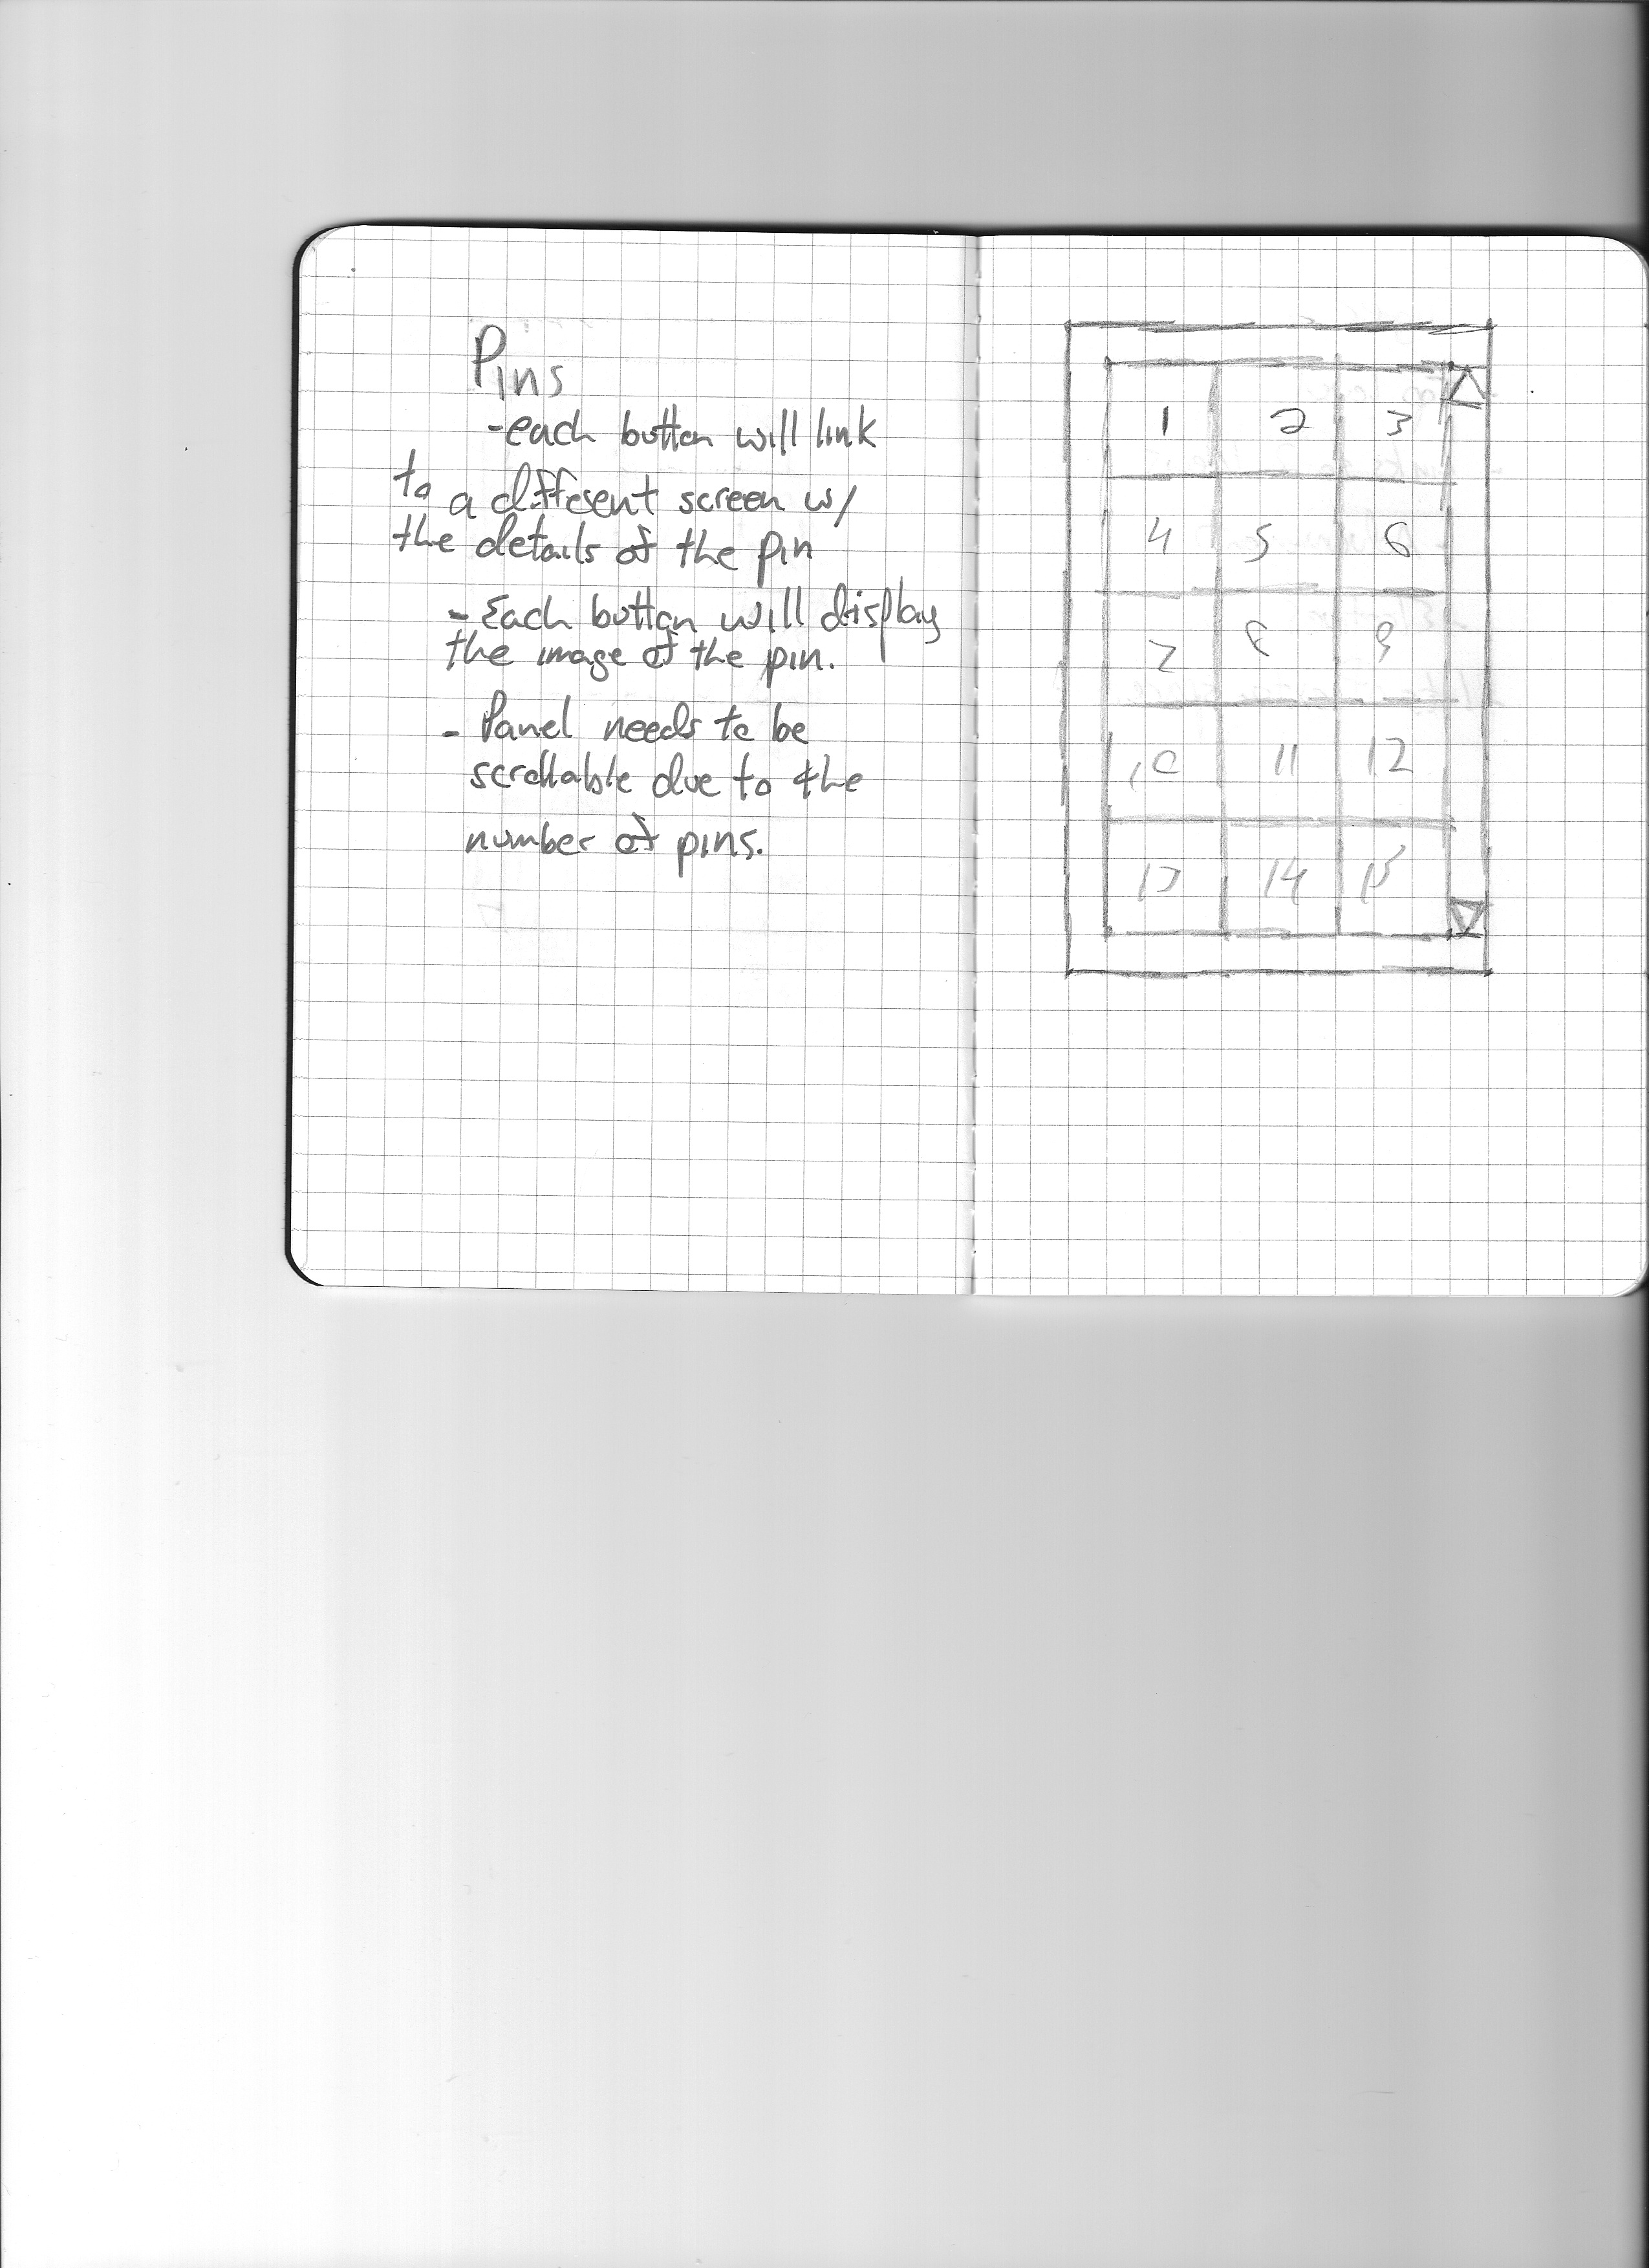 Pins
-each button will link
to a different screen w/
the details of the pin
- Each button will display
the image of the pin.
- Panel needs to be
scrollable due to the
number of pins.
1 2 3
4 5 6
7 8 9
10 11 12
13 14 15